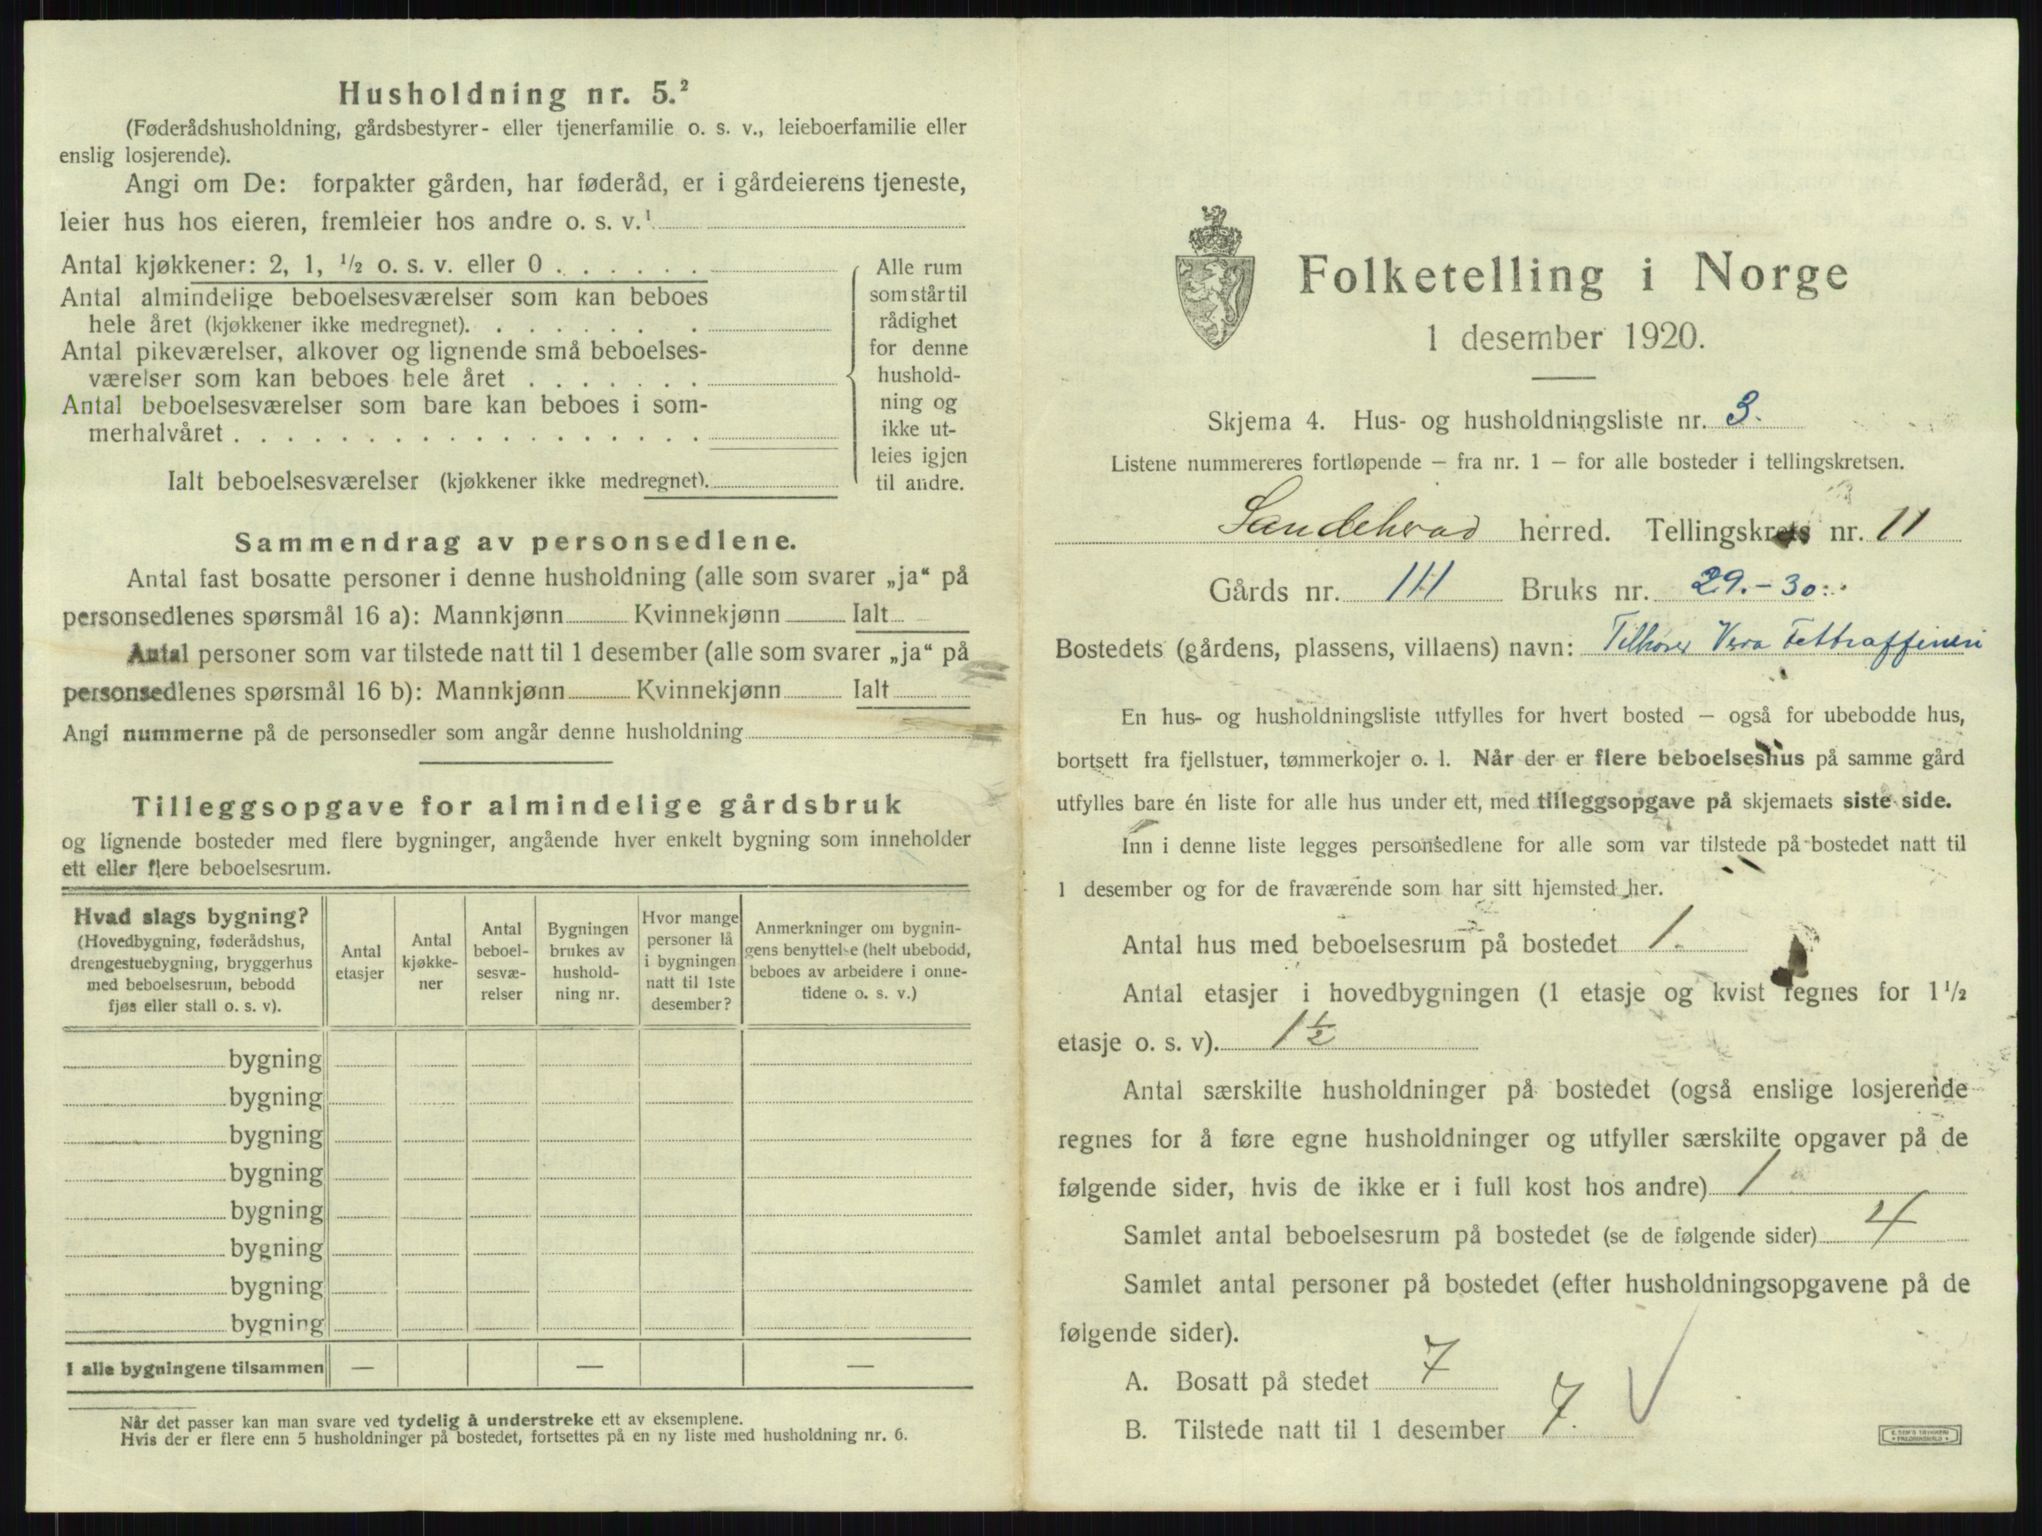 Husholdning nr. 5.²
(Føderådshusholdning, gårdsbestyrer- eller tjenerfamilie o. s. v., leieboerfamilie eller
enslig losjerende).
Angi om De: forpakter gården, har føderåd, er i gårdeierens tjeneste,
leier hus hos eieren, fremleier hos andre o. s. v.¹
Antal kjøkkener: 2, 1, ½ o. s. v. eller 0 . . . . . .
Antal almindelige beboelsesværelser som kan beboes
hele året (kjøkkener ikke medregnet). . . . . . . . .
Antal pikeværelser, alkover og lignende små beboelses-
værelser som kan beboes hele året . . . . . . .
Antal beboelsesværelser som bare kan beboes i som-
merhalvåret . . . . . . . . . . . . . . . . . .
Ialt beboelsesværelser (kjøkkener ikke medregnet).
Alle rum
som står til
rådighet
for denne
hushold-
ning og
ikke ut-
leies igjen
til andre.
Sammendrag av personsedlene.
Antal fast bosatte personer i denne husholdning (alle som svarer „ja“ på
personsedlenes spørsmål 16 a): Mannkjønn Kvinnekjønn Ialt
Antal personer som var tilstede natt til 1 desember (alle som svarer „ja“ på
personsedlenes spørsmål 16 b): Mannkjønn Kvinnekjønn Ialt
Angi nummerne på de personsedler som angår denne husholdning
Tilleggsopgave for almindelige gårdsbruk
og lignende bosteder med flere bygninger, angående hver enkelt bygning som inneholder
ett eller flere beboelsesrum.
Hvad slags bygning?
(Hovedbygning, føderådshus,
drengestuebygning, bryggerhus
med beboelsesrum, bebodd
fjøs eller stall o. s. v).
Antal
etasjer
Antal
kjøkke-
ner
Antal
beboel-
sesvæ-
relser
Bygningen
brukes av
hushold-
ning nr.
Hvor mange
personer lå
i bygningen
natt til 1ste
desember?
Anmerkninger om bygnin-
gens benyttelse (helt ubebodd,
beboes av arbeidere i onne-
tidene o. s. v.)
bygning
bygning
bygning
bygning
bygning
bygning
bygning
bygning
I alle bygningene tilsammen — — —
Når det passer kan man svare ved tydelig å understreke ett av eksemplene.
Hvis der er flere enn 5 husholdninger på bostedet, fortsettes på en ny liste med husholdning nr. 6.
Folketelling i Norge
1 desember 1920.
Skjema 4. Hus- og husholdningsliste nr. 3.
Listene nummereres fortløpende – fra nr. 1 – for alle bosteder i tellingskretsen.
Sandeherad herred. Tellingskrets nr. 11
Gårds nr. 111 Bruks nr. 29.-30.
Bostedets (gårdens, plassens, villaens) navn: Tilhører Vera Fettraffineri
En hus- og husholdningsliste utfylles for hvert bosted – også for ubebodde hus,
bortsett fra fjellstuer, tømmerkojer o. l. Når der er flere beboelseshus på samme gård
utfylles bare én liste for alle hus under ett, med tilleggsopgave på skjemaets siste side.
Inn i denne liste legges personsedlene for alle som var tilstede på bostedet natt til
1 desember og for de fraværende som har sitt hjemsted her.
Antal hus med beboelsesrum på bostedet 1.
Antal etasjer i hovedbygningen (1 etasje og kvist regnes for 1 ½
etasje o. s. v). 1½
Antal særskilte husholdninger på bostedet (også enslige losjerende
regnes for å føre egne husholdninger og utfyller særskilte opgaver på de
følgende sider, hvis de ikke er i full kost hos andre) 1
Samlet antal beboelsesrum på bostedet (se de følgende sider) 4
Samlet antal personer på bostedet (efter husholdningsopgavene på de
følgende sider).
A. Bosatt på stedet 7
B. Tilstede natt til 1 desember 7.